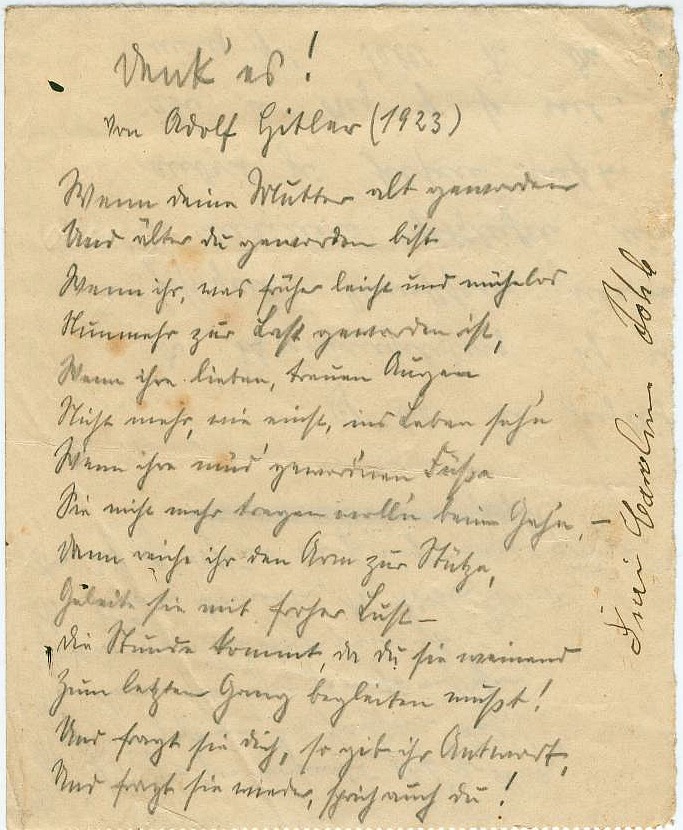 Denk' es!
von Adolf Hitler (1923)
Wenn deine Mutter alt geworden
Und älter du geworden bist
Wenn ihr, was früher leicht und mühelos
Nunmehr zur Last geworden ist,
Wenn ihre lieben, treuen Augen
Nicht mehr, wie einst, ins Leben seh'n
Wenn ihre müd' gewordnen Füße
Sie nicht mehr tragen woll'n beim Geh'n, –
Dann reiche ihr den Arm zur Stütze,
Geleite sie mit froher Lust –
Die Stunde kommt, da du sie weinend
Zum letzten Gang begleiten mußt!
Und fragt sie dich, so gib ihr Antwort,
Und fragt sie wieder, sprich auch du!
Carolin Pohl